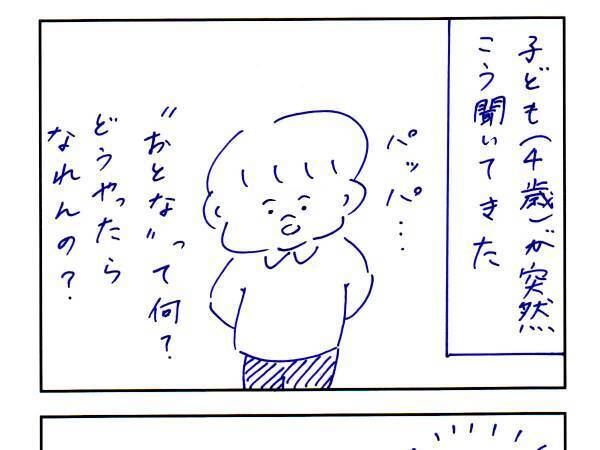 子ども(4歳)が突然
こう聞いてきた
パッパ…
"おとな"って何?
どうやったら
なれんの?